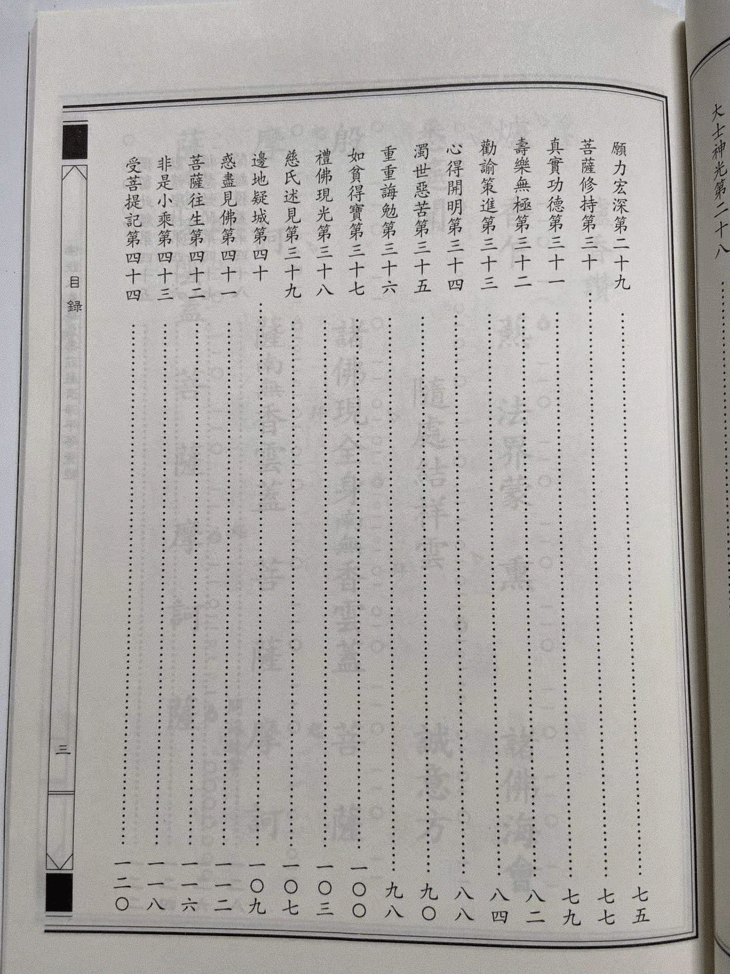 大士神光第二十八
願力宏深第二十九……七五
菩薩修持第三十……七七
真實功德第三十一……七九
壽樂無極第三十二……八二
勸諭策進第三十三……八四
心得開明第三十四……八八
濁世惡苦第三十五……九〇
重重誨勉第三十六……九八
如貧得寶第三十七……一〇〇
禮佛現光第三十八……一〇三
慈氏述見第三十九……一〇七
邊地疑城第四十……一〇九
惑盡見佛第四十一……一一二
菩薩往生第四十二……一一六
非是小乘第四十三……一一八
受菩提記第四十四……一二〇
目錄
三